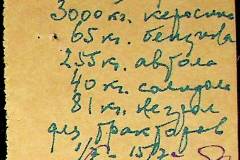 3000 кг. керосина
65 кг. бензина
255 кг. автола
40 кг. солидола
81 кг. негрол
для тракторов